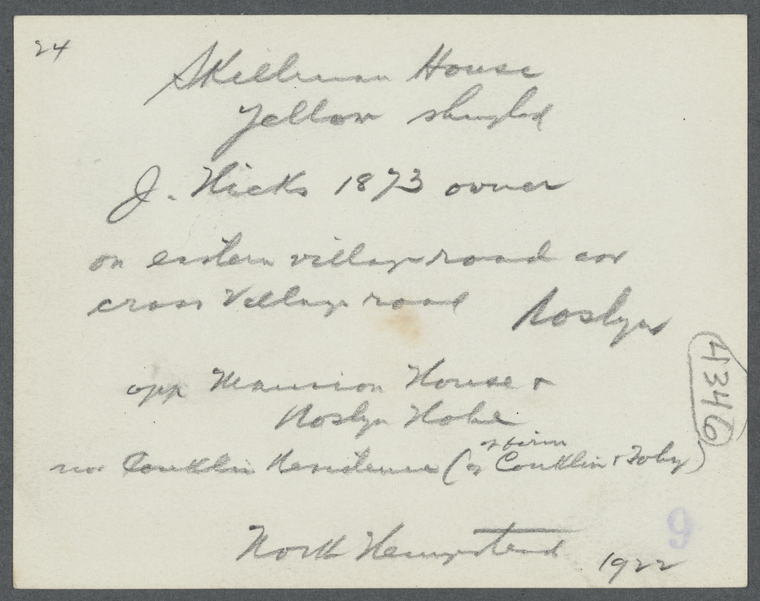 24
Skillman House
Yellow shingled
J. Hicks 1873 owner
on eastern village road cor
cross Village road Roslyn
opp Mansion House &
Roslyn Hotel
nr Conklin Residence (of firm of Conklin & Toby)
4346
9
North Hempstead 1922